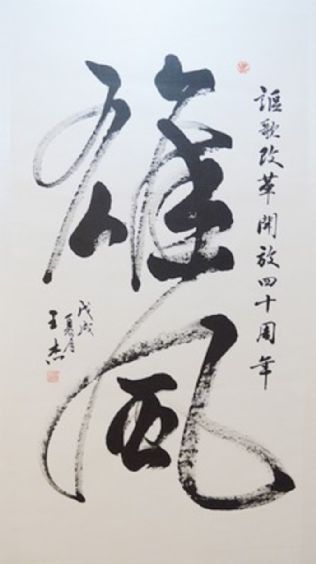 謳歌改革開放四十周年
雄风
戊戌
夏月
王杰